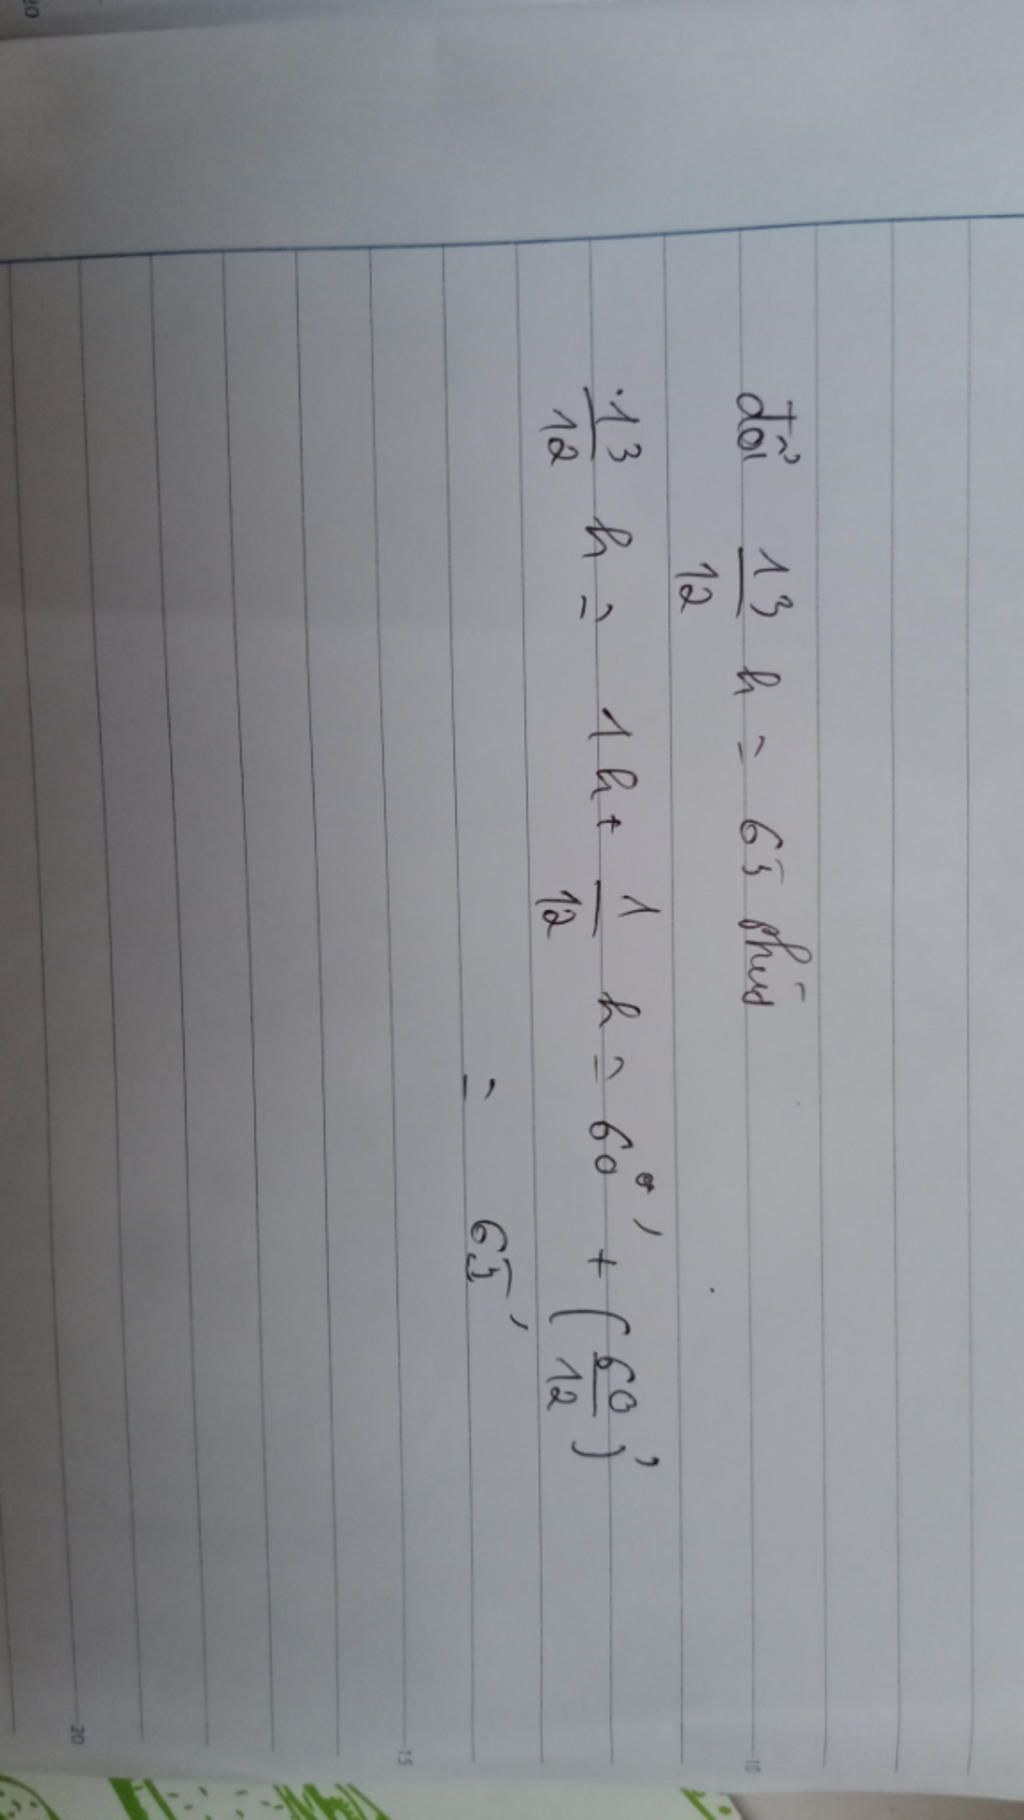 đổi 13/12 h = 65 phút
13/12 h = 1h + 1/12 h = 60' + (60/12)'
= 65'
20
15
10
20